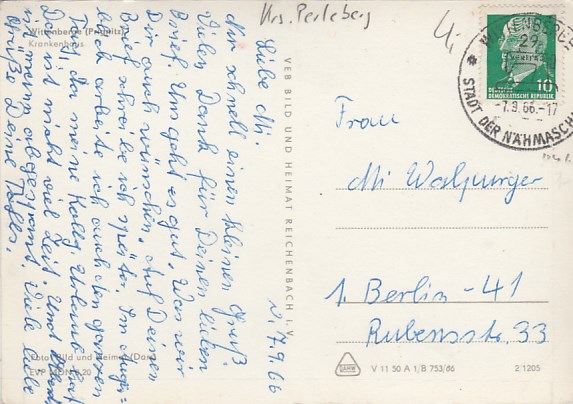 Krs. Perleberg
Wittenberge (Prignitz)
Krankenhaus
W. 7.9.66
Liebe Mi.
Nur schnell einen kleinen Gruß.
Vielen Dank für Deinen lieben
Brief. Uns geht es gut. Was wir
Dir auch wünschen. Auf Deinen
Brief schreibe ich später. Im Augen-
blick arbeite ich auch den ganzen
Tag, da meine Kolleg. Urlaub hat
Da ist nicht viel Zeit. Und
bin immer abgespannt. Viele liebe
Grüße Deine
Foto: Bild und Heimat (Darr)
VEB BILD UND HEIMAT REICHENBACH i. V.
WITTENBERGE
29
-7.9.66.-17
STADT DER NÄHMASCH
10
DEUTSCHE
DEMOKRATISCHE REPUBLIK
Frau
Mi Walpurger
1. Berlin-41
Rubensstr. 33
V 11 50 A 1/B 753/66
2/1205